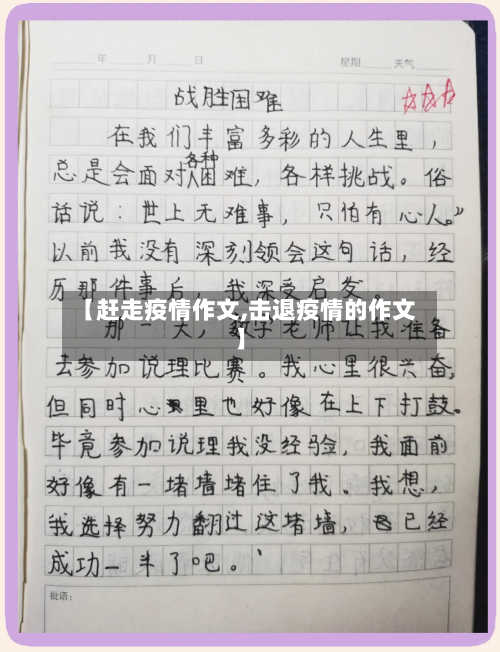 年 月 日 星期 天气
战胜困难
在我们丰富多彩的人生里，
总是会面对各种困难，各样挑战。俗
话说：世上无难事，只怕有心人。”
以前我没有深刻领会这句话，经
历那件事后，我深受启发
【赶走疫情作文,击退疫情的作文
】
那一天，数学老师让我准备
去参加说理比赛。我心里很兴奋，
但同时心里也好像在上下打鼓。
毕竟参加说理我没经验，我面前
好像有一堵墙堵住了我。我想，
我选择努力翻过这堵墙，已经
成功一半了吧。
批语：